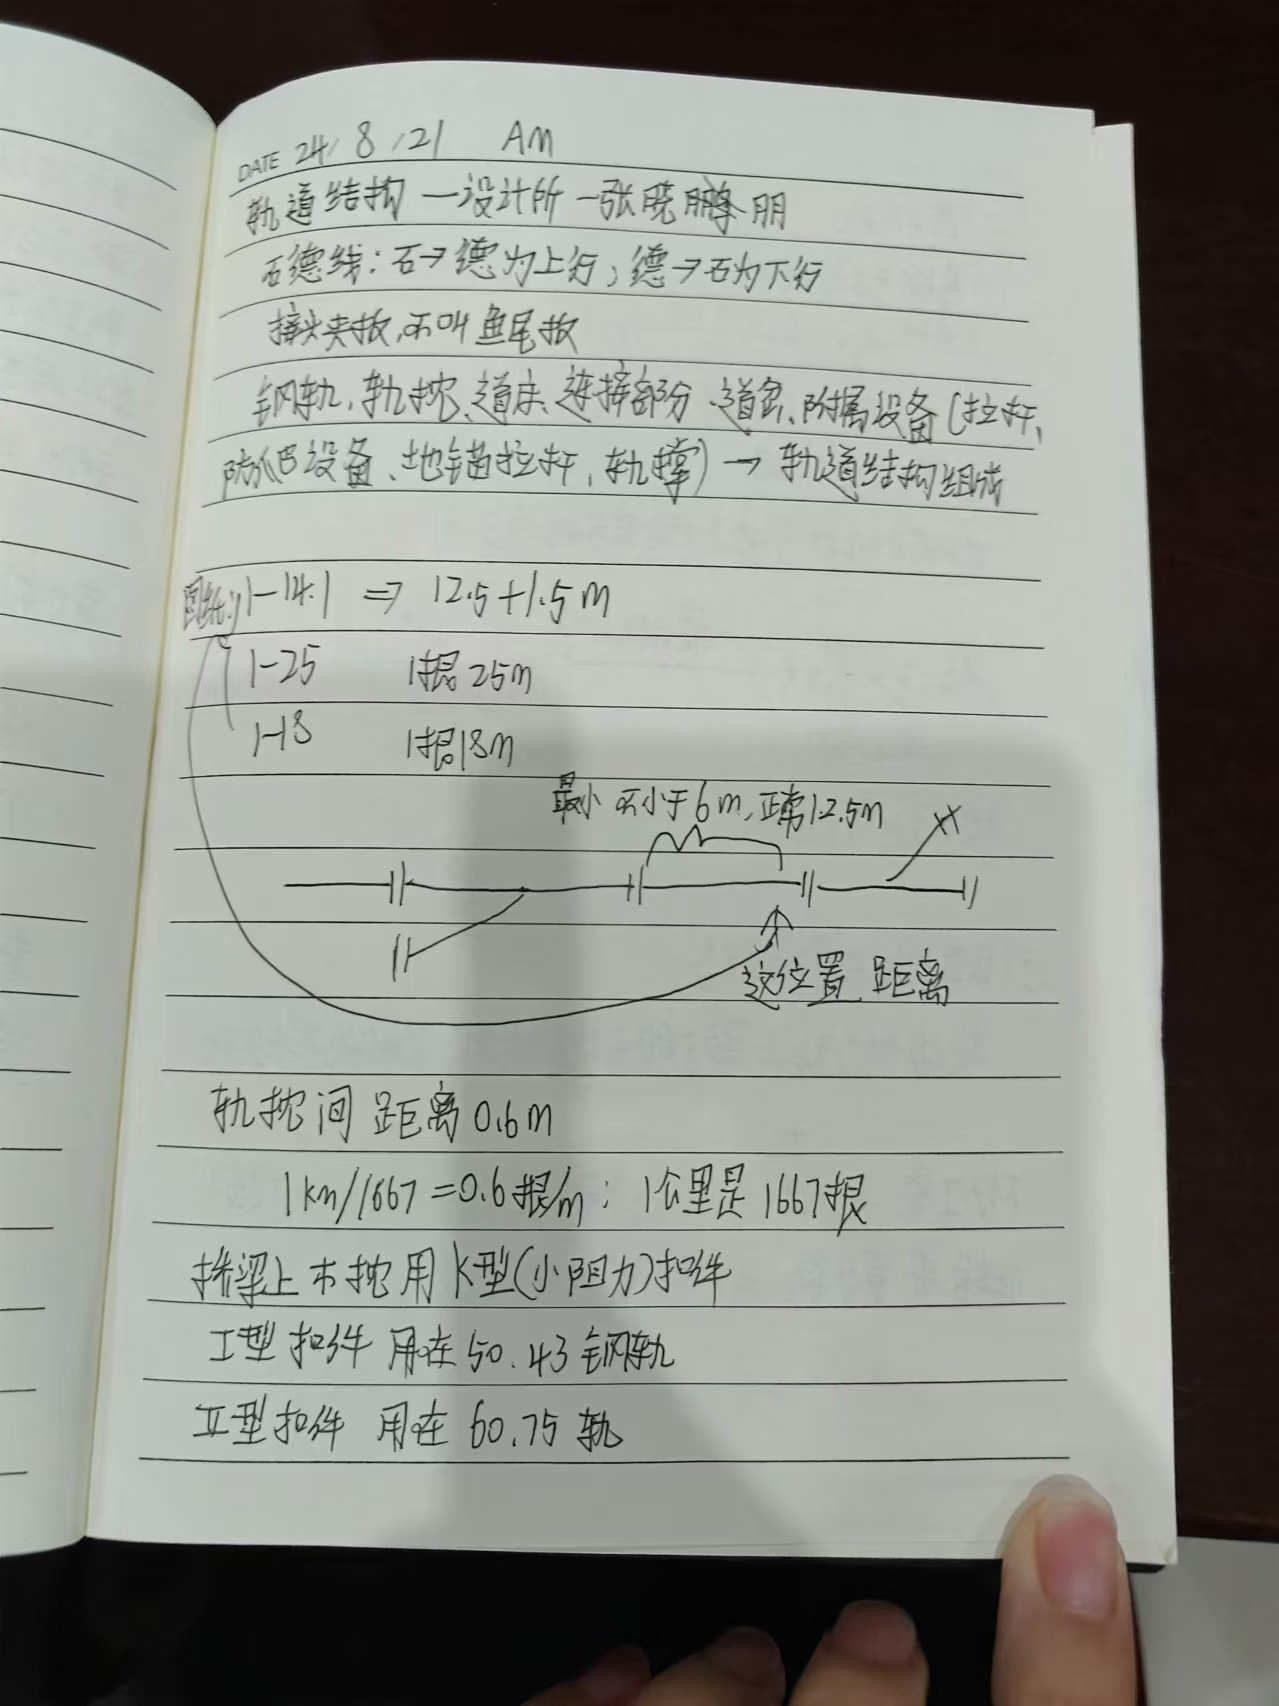 DATE 24/8/21 AM
轨道结构 一设计所 一张晓鹏 朋
石德线：石→德为上行，德→石为下行
接头夹板，不叫鱼尾板
钢轨、轨枕、道床、连接部分、道岔、附属设备（拉杆、
防爬设备、地锚拉杆、轨撑）→ 轨道结构组成
图纸: 1-14.1 ⇒ 12.5+1.5m
1-25 1根25m
1-18 1根18m
最小不小于6m，正常12.5m
这位置 距离
轨枕间距离0.6m
1km/1667=0.6根/m；1公里是1667根
桥梁上木枕用K型(小阻力)扣件
I型扣件 用在50、43钢轨
II型扣件 用在60、75轨